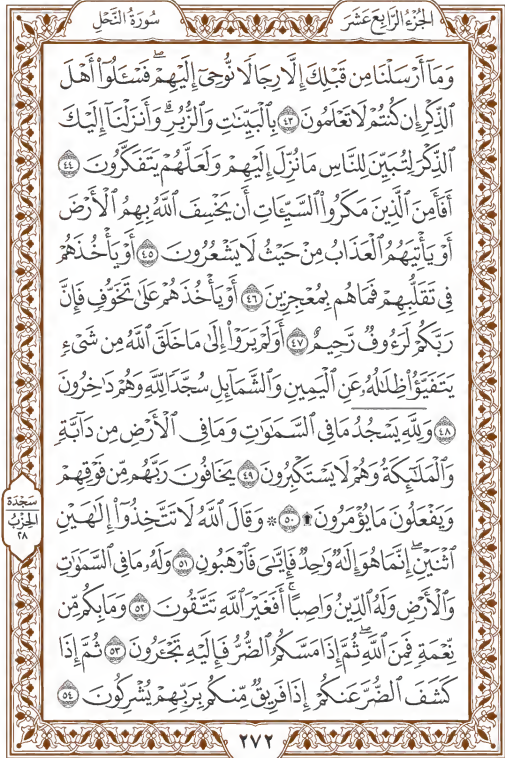 الجُزْءُ الرَّابِعَ عَشَرَ
سُورَةُ النَّحْلِ
وَمَآ أَرْسَلْنَا مِن قَبْلِكَ إِلَّا رِجَالًا نُّوحِىٓ إِلَيْهِمْ ۖ فَسْـَٔلُوٓا۟ أَهْلَ
ٱلذِّكْرِ إِن كُنتُمْ لَا تَعْلَمُونَ ٤٣ بِٱلْبَيِّنَٰتِ وَٱلزُّبُرِ ۗ وَأَنزَلْنَآ إِلَيْكَ
ٱلذِّكْرَ لِتُبَيِّنَ لِلنَّاسِ مَا نُزِّلَ إِلَيْهِمْ وَلَعَلَّهُمْ يَتَفَكَّرُونَ ٤٤
أَفَأَمِنَ ٱلَّذِينَ مَكَرُوا۟ ٱلسَّيِّـَٔاتِ أَن يَخْسِفَ ٱللَّهُ بِهِمُ ٱلْأَرْضَ
أَوْ يَأْتِيَهُمُ ٱلْعَذَابُ مِنْ حَيْثُ لَا يَشْعُرُونَ ٤٥ أَوْ يَأْخُذَهُمْ
فِى تَقَلُّبِهِمْ فَمَا هُم بِمُعْجِزِينَ ٤٦ أَوْ يَأْخُذَهُمْ عَلَىٰ تَخَوُّفٍ فَإِنَّ
رَبَّكُمْ لَرَءُوفٌ رَّحِيمٌ ٤٧ أَوَلَمْ يَرَوْا۟ إِلَىٰ مَا خَلَقَ ٱللَّهُ مِن شَىْءٍ
يَتَفَيَّؤُا۟ ظِلَٰلُهُۥ عَنِ ٱلْيَمِينِ وَٱلشَّمَآئِلِ سُجَّدًا لِّلَّهِ وَهُمْ دَٰخِرُونَ
٤٨ وَلِلَّهِ يَسْجُدُ مَا فِى ٱلسَّمَٰوَٰتِ وَمَا فِى ٱلْأَرْضِ مِن دَآبَّةٍ
وَٱلْمَلَٰٓئِكَةُ وَهُمْ لَا يَسْتَكْبِرُونَ ٤٩ يَخَافُونَ رَبَّهُم مِّن فَوْقِهِمْ
وَيَفْعَلُونَ مَا يُؤْمَرُونَ ۩ ٥٠ ۞ وَقَالَ ٱللَّهُ لَا تَتَّخِذُوٓا۟ إِلَٰهَيْنِ
ٱثْنَيْنِ ۖ إِنَّمَا هُوَ إِلَٰهٌ وَٰحِدٌ فَإِيَّٰىَ فَٱرْهَبُونِ ٥١ وَلَهُۥ مَا فِى ٱلسَّمَٰوَٰتِ
وَٱلْأَرْضِ وَلَهُ ٱلدِّينُ وَاصِبًا ۚ أَفَغَيْرَ ٱللَّهِ تَتَّقُونَ ٥٢ وَمَا بِكُم مِّن
نِّعْمَةٍ فَمِنَ ٱللَّهِ ۖ ثُمَّ إِذَا مَسَّكُمُ ٱلضُّرُّ فَإِلَيْهِ تَجْـَٔرُونَ ٥٣ ثُمَّ إِذَا
كَشَفَ ٱلضُّرَّ عَنكُمْ إِذَا فَرِيقٌ مِّنكُم بِرَبِّهِمْ يُشْرِكُونَ ٥٤
سَجْدَة
الحِزْبُ
٢٨
٢٧٢